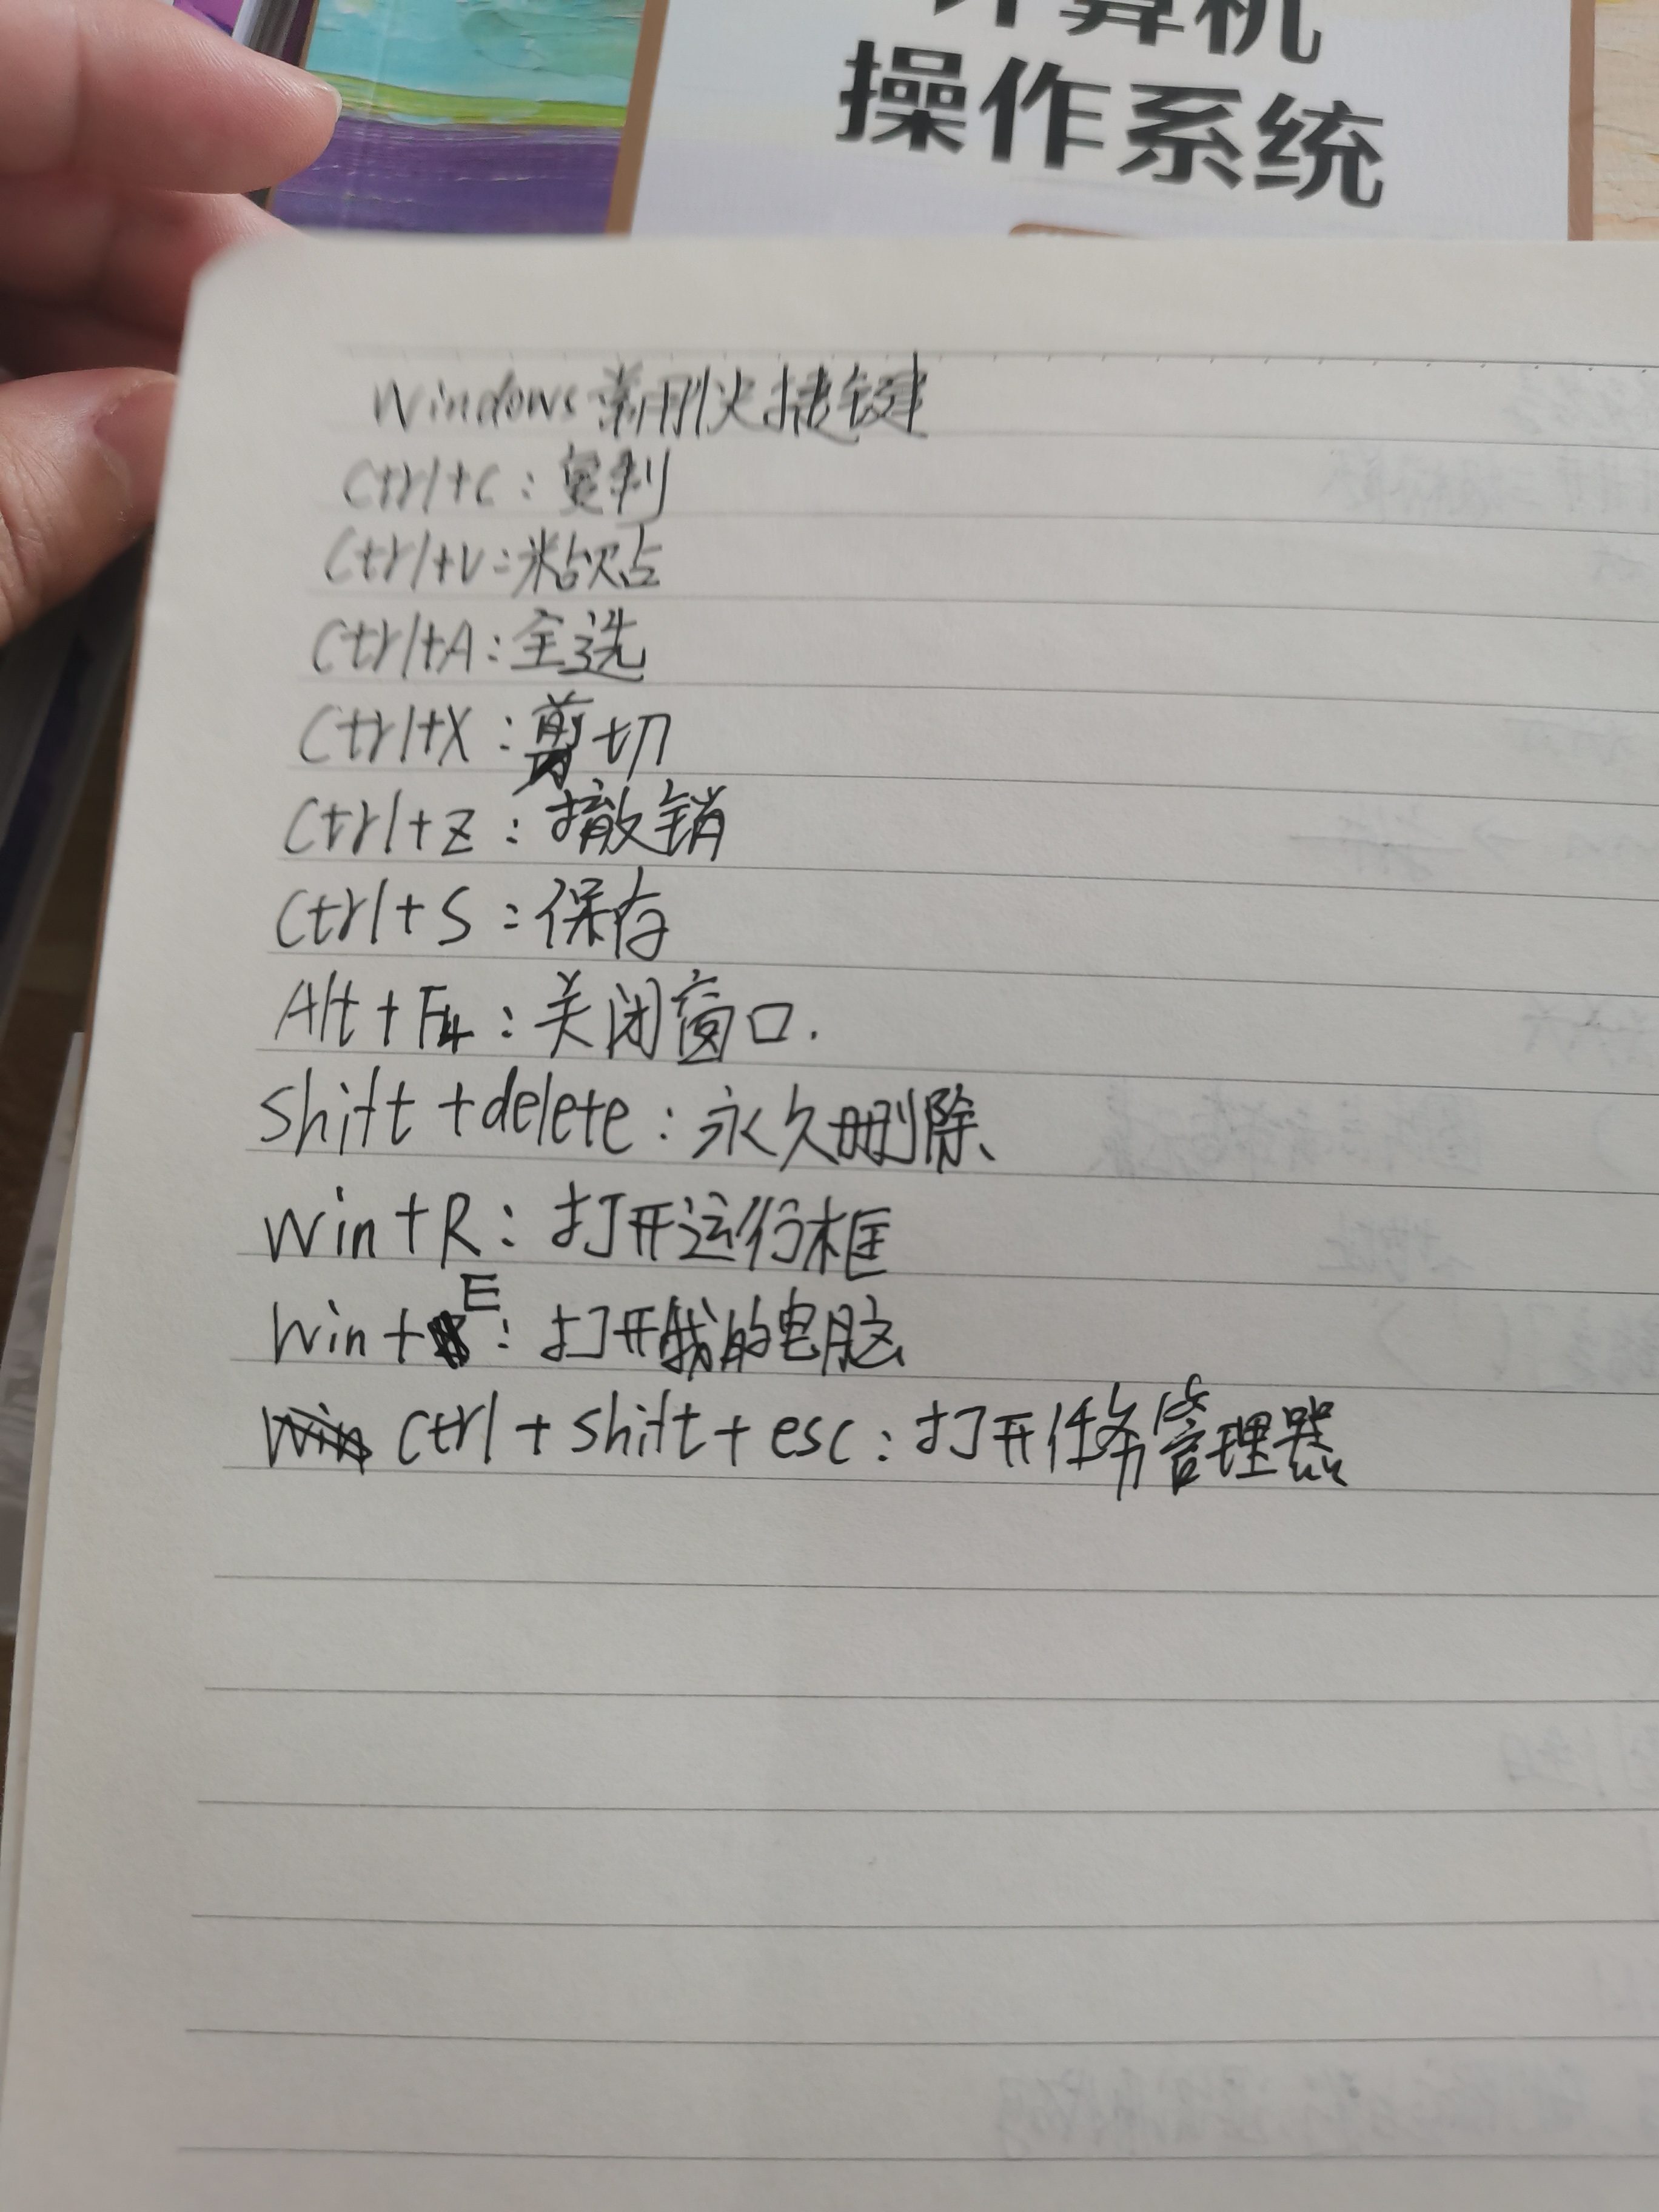 计算机
操作系统
Windows常用快捷键
Ctrl+C:复制
Ctrl+V:粘贴
Ctrl+A:全选
Ctrl+X:剪切
Ctrl+Z:撤销
Ctrl+S:保存
Alt+F4:关闭窗口.
Shift+delete:永久删除、
Win+R:打开运行框
Win+E:打开我的电脑
Ctrl+shift+esc:打开任务管理器